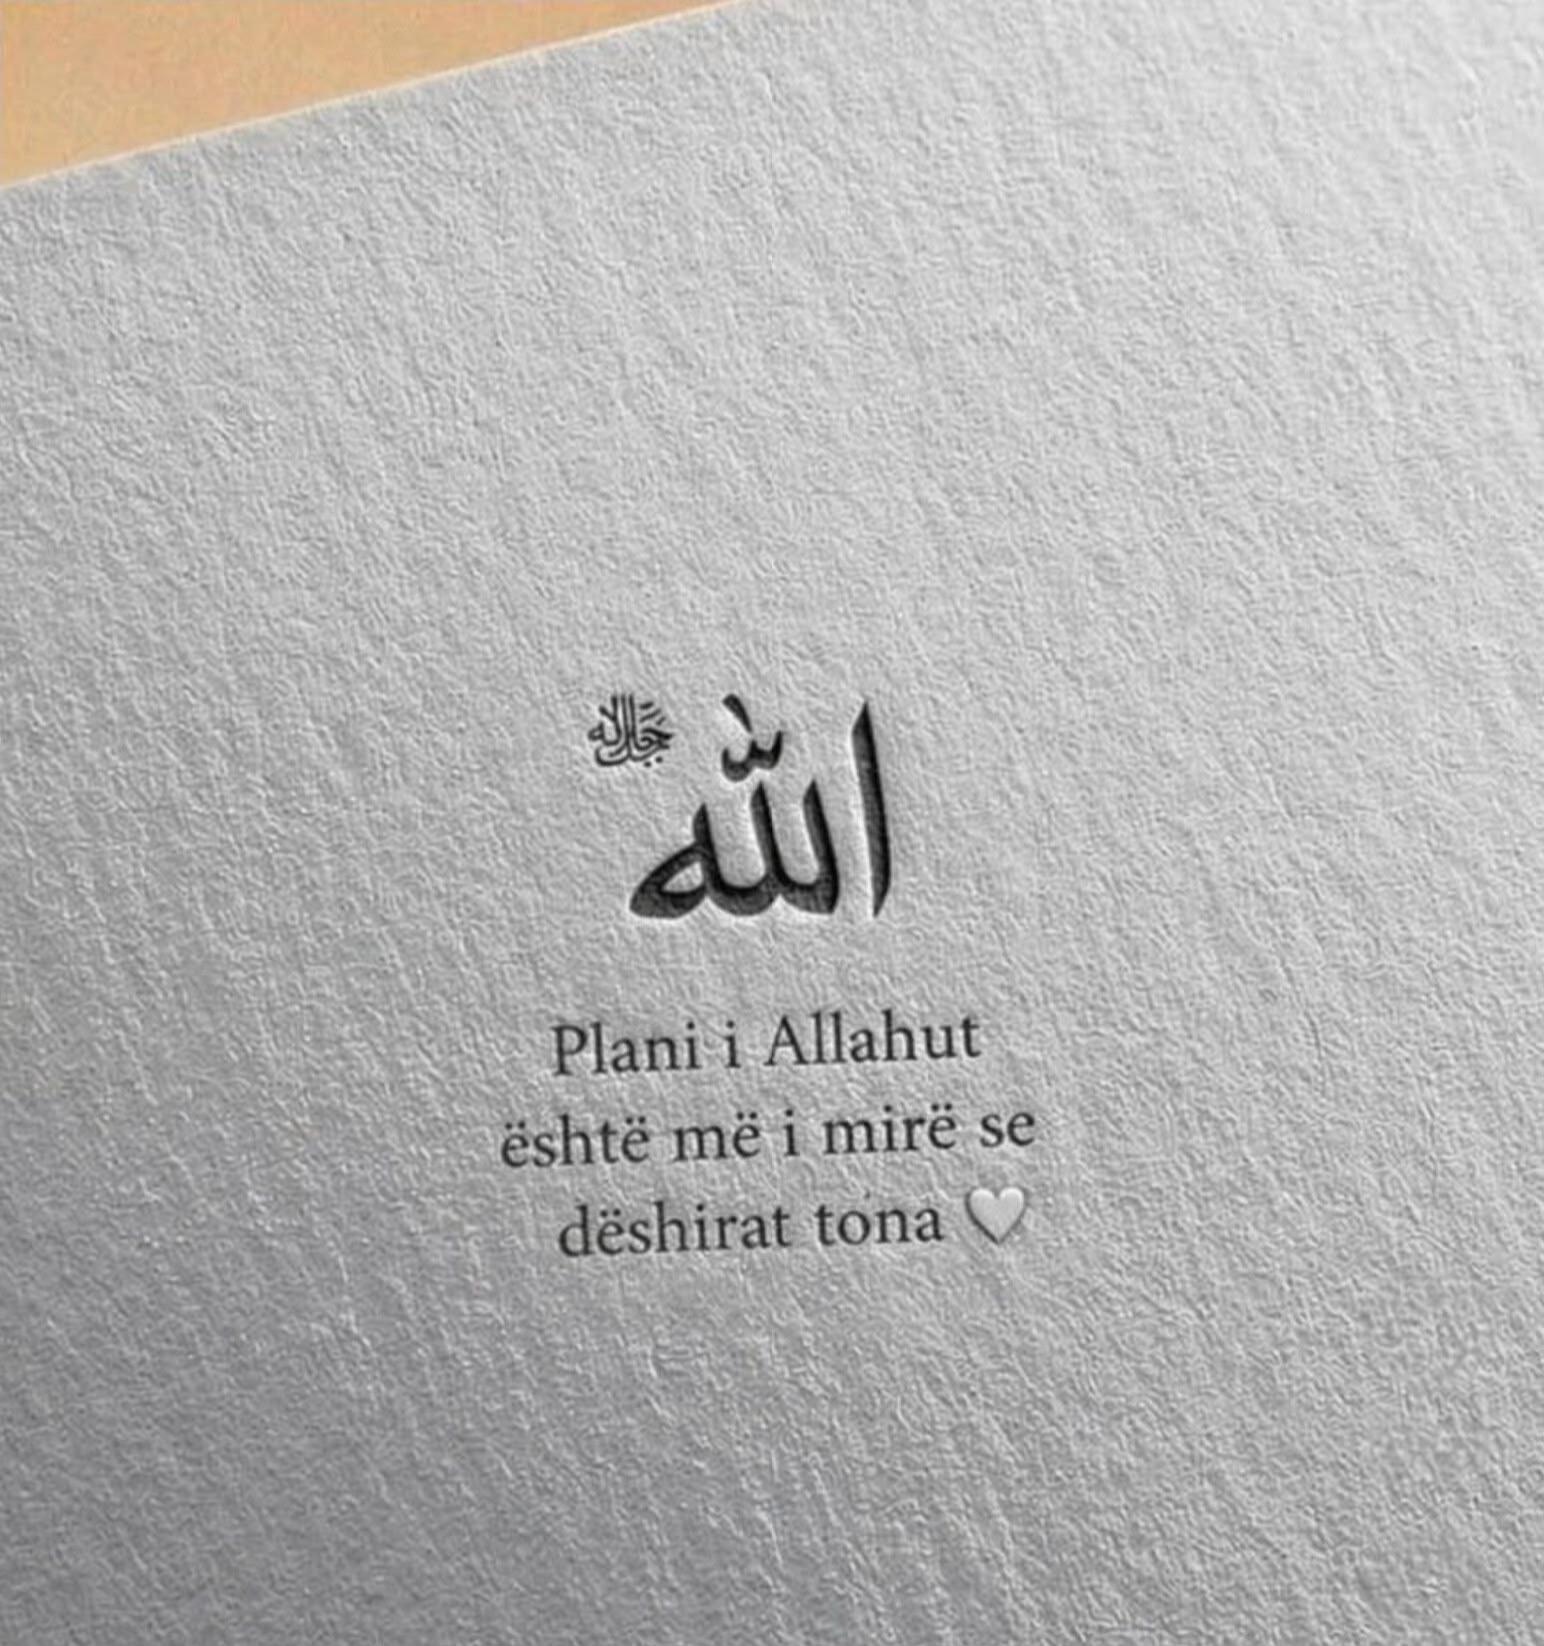 الله ﷻ
Plani i Allahut
është më i mirë se
dëshirat tona 🤍